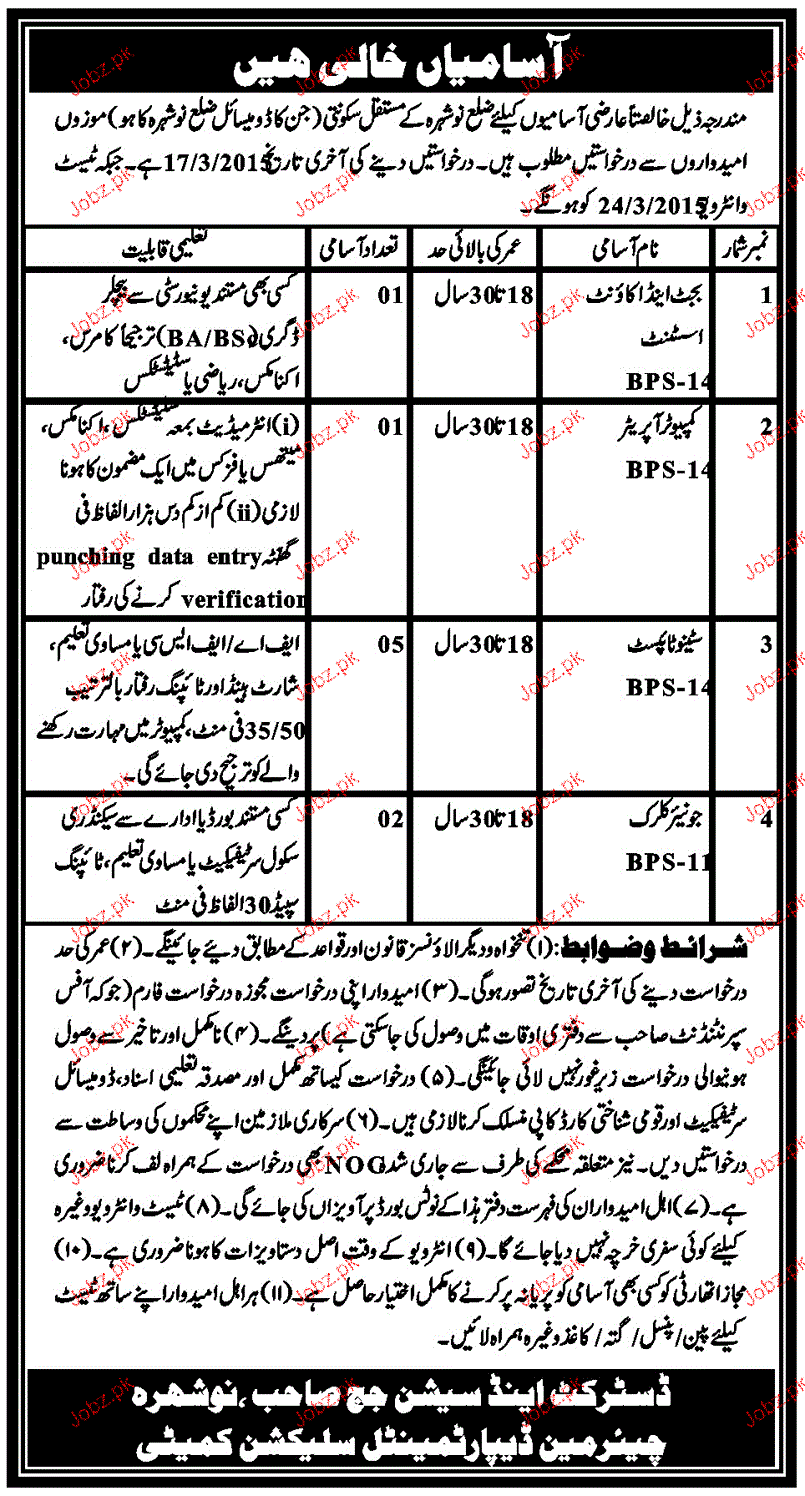 آسامیاں خالی ہیں
مندرجہ ذیل خالصتاً عارضی آسامیوں کیلئے ضلع نوشہرہ کے مستقل سکونتی (جن کا ڈومیسائل ضلع نوشہرہ کا ہو) موزوں
امیدواروں سے درخواستیں مطلوب ہیں۔ درخواستیں دینے کی آخری تاریخ 17/3/2015 ہے۔ جبکہ ٹیسٹ
وانٹرویو 24/3/2015 کو ہونگے۔
نمبر شمار نام آسامی عمر کی بالائی حد تعداد آسامی تعلیمی قابلیت
1 بجٹ اینڈ اکاؤنٹ 18 تا 30 سال 01 کسی بھی مستند یونیورسٹی سے بیچلر
اسسٹنٹ ڈگری (BA/BSc) ترجیحاً کامرس،
BPS-14 اکنامکس، ریاضی یا سٹیٹسٹکس
2 کمپیوٹر آپریٹر 18 تا 30 سال 01 (i) انٹرمیڈیٹ بمعہ سٹیٹسٹکس، اکنامکس،
BPS-14 میتھس یا فزکس میں ایک مضمون کا ہونا
لازمی (ii) کم از کم دس ہزار الفاظ فی
گھنٹہ punching data entry
verification کرنے کی رفتار
3 سٹینو ٹائپسٹ 18 تا 30 سال 05 ایف اے/ایف ایس سی یا مساوی تعلیم،
BPS-14 شارٹ ہینڈ اور ٹائپنگ رفتار بالترتیب
35/50 فی منٹ، کمپیوٹر میں مہارت رکھنے
والے کو ترجیح دی جائے گی۔
4 جونیئر کلرک 18 تا 30 سال 02 کسی مستند بورڈ یا ادارے سے سیکنڈری
BPS-11 سکول سرٹیفکیٹ یا مساوی تعلیم، ٹائپنگ
سپیڈ 30 الفاظ فی منٹ
شرائط وضوابط: (۱) تنخواہ و دیگر الاؤنسز قانون اور قواعد کے مطابق دیئے جائینگے۔ (۲) عمر کی حد
درخواست دینے کی آخری تاریخ تصور ہوگی۔ (۳) امیدوار اپنی درخواست مجوزہ درخواست فارم (جو کہ آفس
سپرنٹنڈنٹ صاحب سے دفتری اوقات میں وصول کی جاسکتی ہے) پر دینگے۔ (۴) نامکمل اور تاخیر سے وصول
ہونیوالی درخواست زیر غور نہیں لائی جائینگی۔ (۵) درخواست کیساتھ مکمل اور مصدقہ تعلیمی اسناد، ڈومیسائل
سرٹیفیکیٹ اور قومی شناختی کارڈ کاپی منسلک کرنا لازمی ہیں۔ (۶) سرکاری ملازمین اپنے محکموں کی وساطت سے
درخواستیں دیں۔ نیز متعلقہ محکمے کی طرف سے جاری شدہ NOC بھی درخواست کے ہمراہ لف کرنا ضروری
ہے۔ (۷) اہل امیدواران کی فہرست دفتر ہذا کے نوٹس بورڈ پر آویزاں کی جائے گی۔ (۸) ٹیسٹ وانٹرویو وغیرہ
کیلئے کوئی سفری خرچہ نہیں دیا جائے گا۔ (۹) انٹرویو کے وقت اصل دستاویزات کا ہونا ضروری ہے۔ (۱۰)
مجاز اتھارٹی کو کسی بھی آسامی کو پُر یا نہ پر کرنے کا مکمل اختیار حاصل ہے۔ (۱۱) ہر اہل امیدوار اپنے ساتھ ٹیسٹ
کیلئے پین/پنسل/گتہ/کاغذ وغیرہ ہمراہ لائیں۔
ڈسٹرکٹ اینڈ سیشن جج صاحب، نوشہرہ
چیئرمین ڈیپارٹمینٹل سلیکشن کمیٹی
Jobz.pk